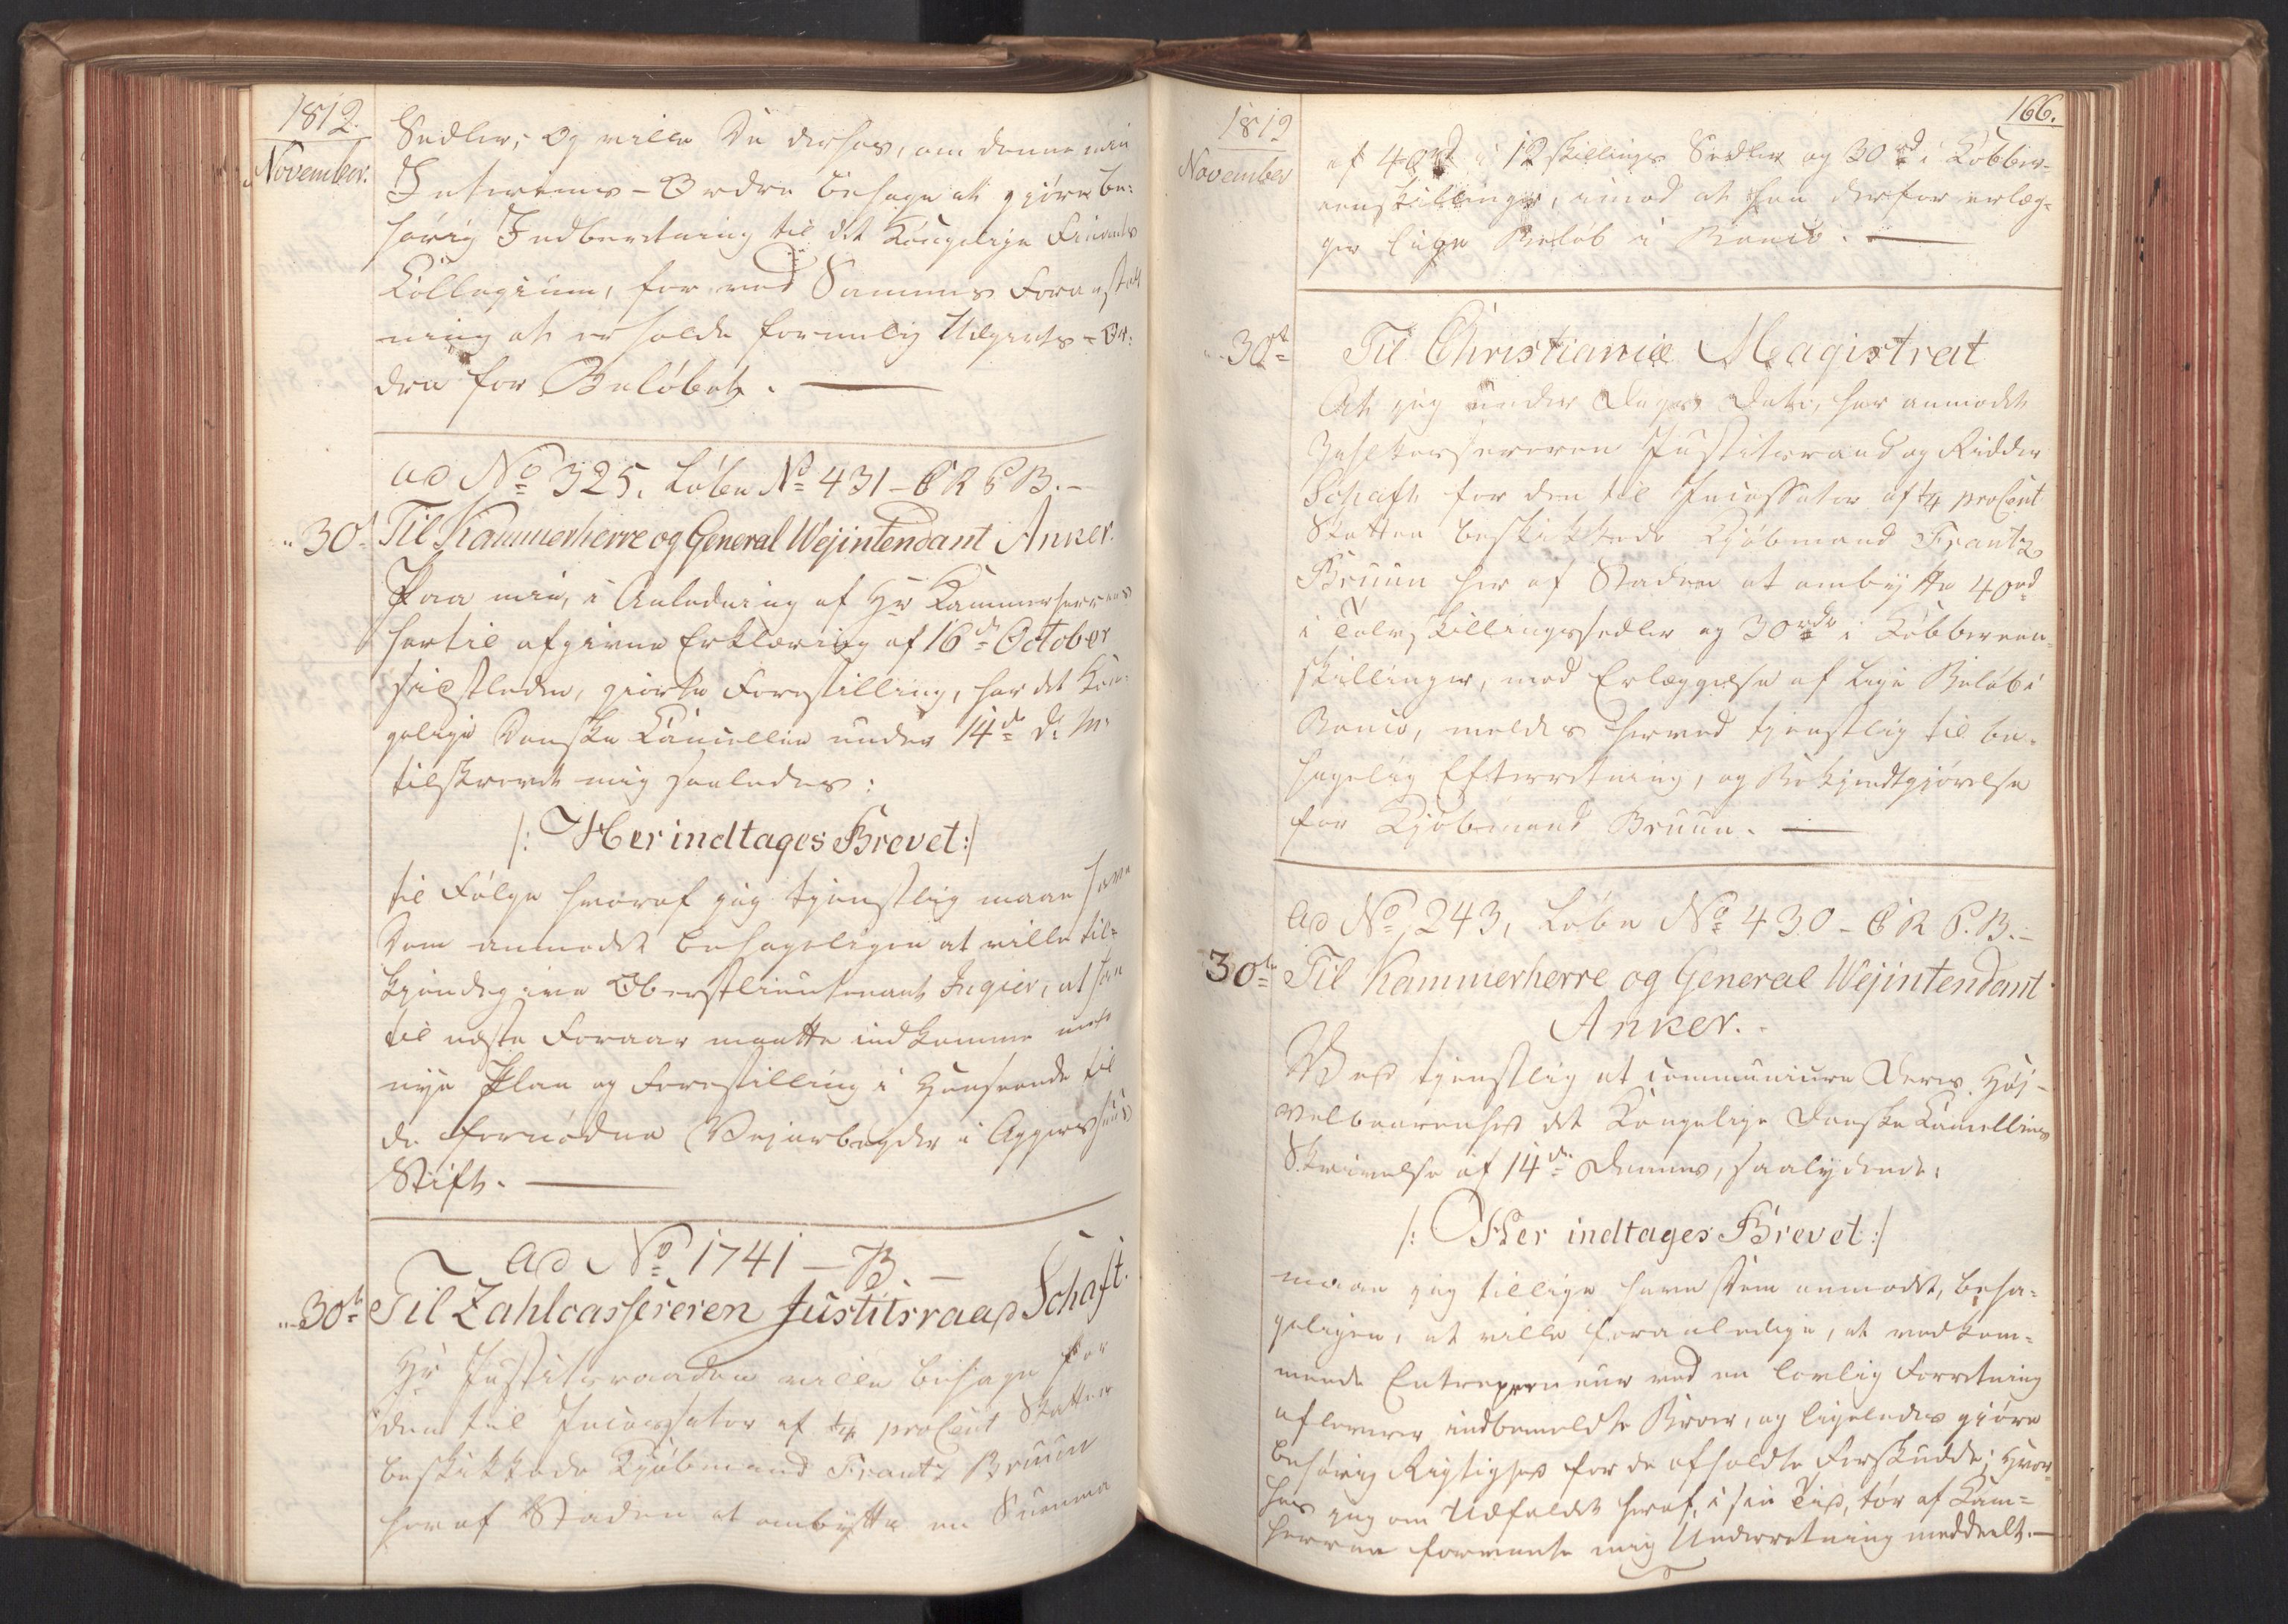 1812.
November.
Sedler; Og ville De derhos, om denne min
Interims-Ordre behage at gjøre be-
hørig Indberetning til det Kongelige Finants
Collegium, for ved Sammes Foranstalt
ning at erholde formelig Udgivts-Or-
dre for Beløbet.
ad No 325. Løbe No 431 - C R P B.-
30t Til Kammerherre og General Vejintendant Anker.
Paa min, i Anledning af Hr Kammerherrens
hertil afgivne Erklæring af 16de October
sidstleden, giorte Forestilling, har det Kon-
gelige Danske Cancellie under 14de d: M:
tilskrevet mig saaledes:
/: Her indtages Brevet :/
til Følge hvoraf jeg tjenstlig maae have
Dem anmodet behageligen at ville til-
kjendegive Oberstlieutenant Ingier, at han
til næste Foraar maatte indkomme med
nye Plan og Forestilling i Henseende til
de fornødne Vejarbeyder i Aggershuus
Stift.
ad No 1741 - B -
30te Til Zahlcassereren Justitsraad Schaft.
Hr Justitsraaden ville behage for
den til Incassator af 1/4 proCent Skatten
beskikkede Kjøbmand Frantz Bruun
her af Staden at ombytte en Summa
1812
November
166.
af 40rd i 12 skillings Sedler og 30rd i Kobber-
eenskillinger, imod at han derfor erlæg-
ger lige Beløb i Banco.
30te Til Christiania Magistrat
At jeg under Dags Dato, har anmodet
Zahlkassereren Justitsraad og Ridder
Schaft for den til Incassator af 1/4 proCent
Skatten beskikkede Kjøbmand Frantz
Bruun her af Staden at ombytte 40rd
i Tolvskillingssedler og 30rdr i Kobbereen-
skillinger, mod Erlæggelse af lige Beløb i
Banco, meldes herved tjenstlig til be-
hagelig Efterretning, og Bekjendtgjørelse
for Kjøbmand Bruun.
ad No 243, Løbe No 430 - C R P. B.-
30te Til Kammerherre og General Vejintendant
Anker.
Ved tjenstlig at communicere Deres Høj-
velbaarenhed det Kongelige Danske Cancellies
Skrivelse af 14de Dennes, saalydende:
/: Her indtages Brevet :/
maae jeg tillige have Dem anmodet, beha-
geligen, at ville foranledige, at vedkom-
mende Entrepreneur ved en lovlig Forretning
afleverer indbemeldte Broer, og ligeledes gjøre
behørig Rigtighed for de afholdte Forskudde; Hvor-
hos jeg om Udfaldet heraf, i sin Tid, tør af Kam-
herren forvente mig Underretning meddeelt.